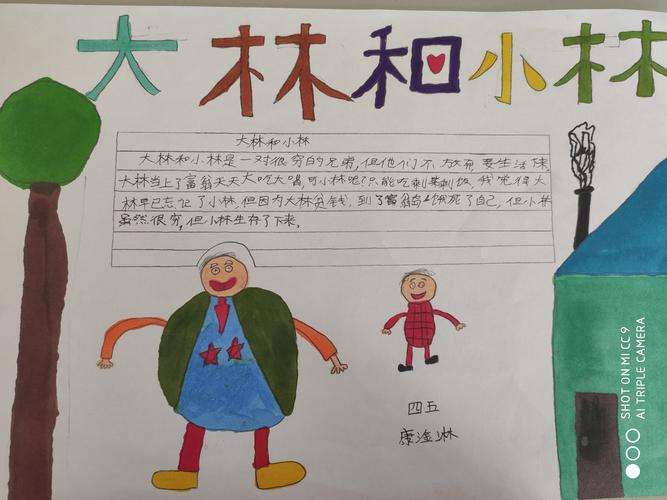 大林和小林
大林和小林
大林和小林是一对很穷的兄弟,但他们不放弃要生活下来,
大林当上了富翁天天大吃大喝,可小林呢?只能吃剩菜剩饭,我觉得大
林早已忘记了小林,但因为大林贪钱,到了富翁岛上饿死了自己,但小林
虽然很穷,但小林生存了下来。
四五
康淋
SHOT ON MI CC 9
AI TRIPLE CAMERA